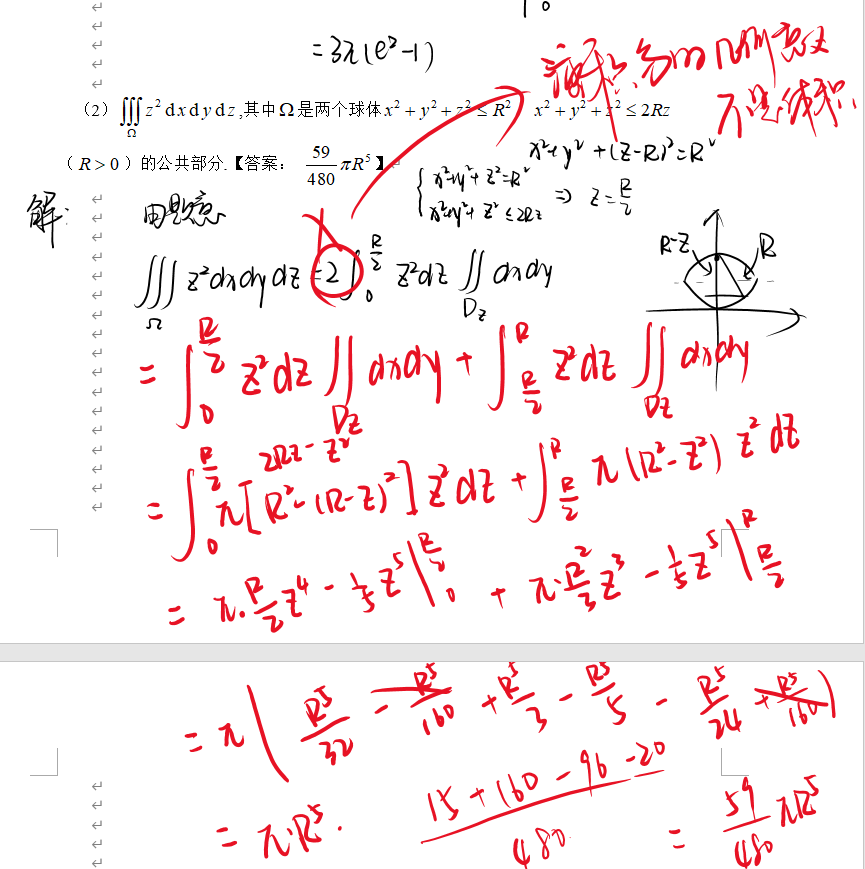 = 3π(e² - 1)
三重积分的几何意义
不是体积
(2) ∭_Ω z² dx dy dz ,其中Ω是两个球体 x² + y² + z² ≤ R² x² + y² + z² ≤ 2Rz
( R > 0 ) 的公共部分.【答案: 59/480 πR⁵】
x² + y² + (z-R)² = R²
{ x²+y²+z²=R²
x²+y²+z² ≤ 2Rz ⇒ z = R/2
解: 由题意
∭_Ω z² dx dy dz = 2 ∫_0^{R/2} z² dz ∬_{Dz} dx dy
R-z R
= ∫_0^{R/2} z² dz ∬_{Dz} dx dy + ∫_{R/2}^R z² dz ∬_{Dz} dx dy
2Rz - z²
= ∫_0^{R/2} π[R² - (R-z)²] z² dz + ∫_{R/2}^R π(R² - z²) z² dz
= π · R/2 z⁴ - 1/5 z⁵ |_0^{R/2} + π · R²/3 z³ - 1/5 z⁵ |_{R/2}^R
= π ( R⁵/32 - R⁵/160 + R⁵/3 - R⁵/5 - R⁵/24 + R⁵/160 )
= π · R⁵ · (15 + 160 - 96 - 20)/480 = 59/480 πR⁵